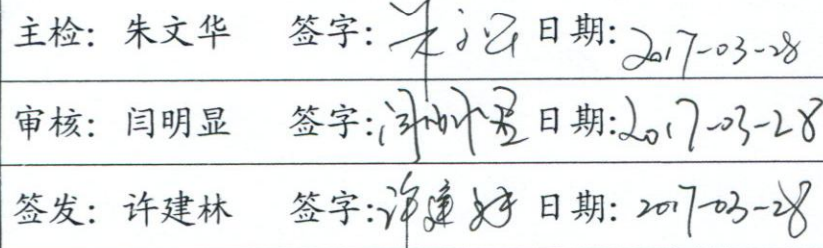 主检：朱文华 签字：朱文华 日期：2017-03-28
审核：闫明显 签字：闫明显 日期：2017-03-28
签发：许建林 签字：许建林 日期：2017-03-28